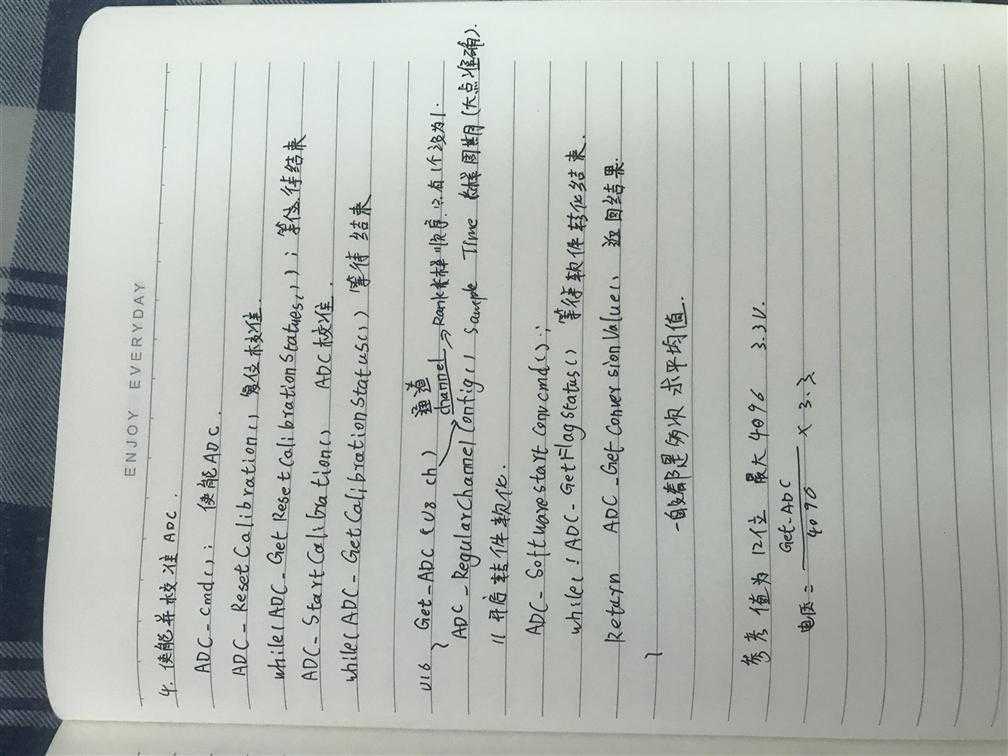 ENJOY EVERYDAY
4. 使能并校准 ADC.
ADC-Cmd(); 使能ADC.
ADC-ResetCalibration(), 复位校准.
while(ADC-GetResetCalibrationStatues()); 等位待结束
ADC-StartCalibration() ADC校准.
while(ADC-GetCalibrationStatus()) 等待 结束
U16 Get-ADC (U8 ch) 通道
{ channel → Rank采样顺序.只有1个设为1.
ADC-RegularChannelConfig(, Sample Time 采样周期(大点准确).
// 开启转件软化.
ADC-SoftwarestartConvcmd();
while(!ADC-GetFlagStatus() 等待软件转化结束.
Return ADC-GetConversionValue(, 返回结果.
}
一般都是多次 求平均值.
参考值为12位 最大4096 3.3V.
Get-ADC
电压= × 3.3
4096